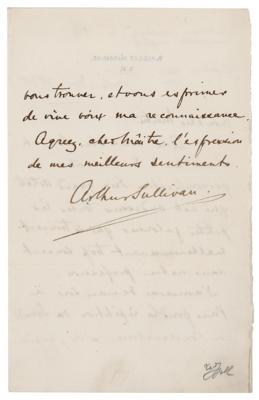 vous trouver, et vous exprimer
de vive voix ma reconnaissance.
Agreez, cher Maître, l'expression
de mes meilleurs sentiments.
Arthur Sullivan.